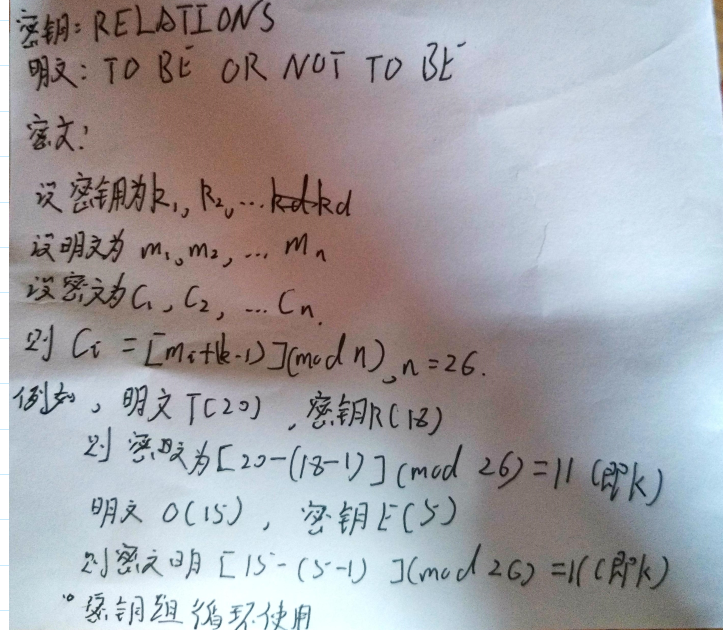 密钥: RELATIONS
明文: TO BE OR NOT TO BE
密文:
设密钥为k₁, k₂, … kd
设明文为 m₁, m₂, … mₙ
设密文为C₁, C₂, … Cₙ.
则 Ci = [mi+(k-1)](mod n), n=26.
例如, 明文T(20), 密钥R(18)
则密文为[20-(18-1)](mod 26)=11(即k)
明文 O(15), 密钥E(5)
则密文明 [15-(5-1)](mod 26)=11(即k)
密钥组循环使用